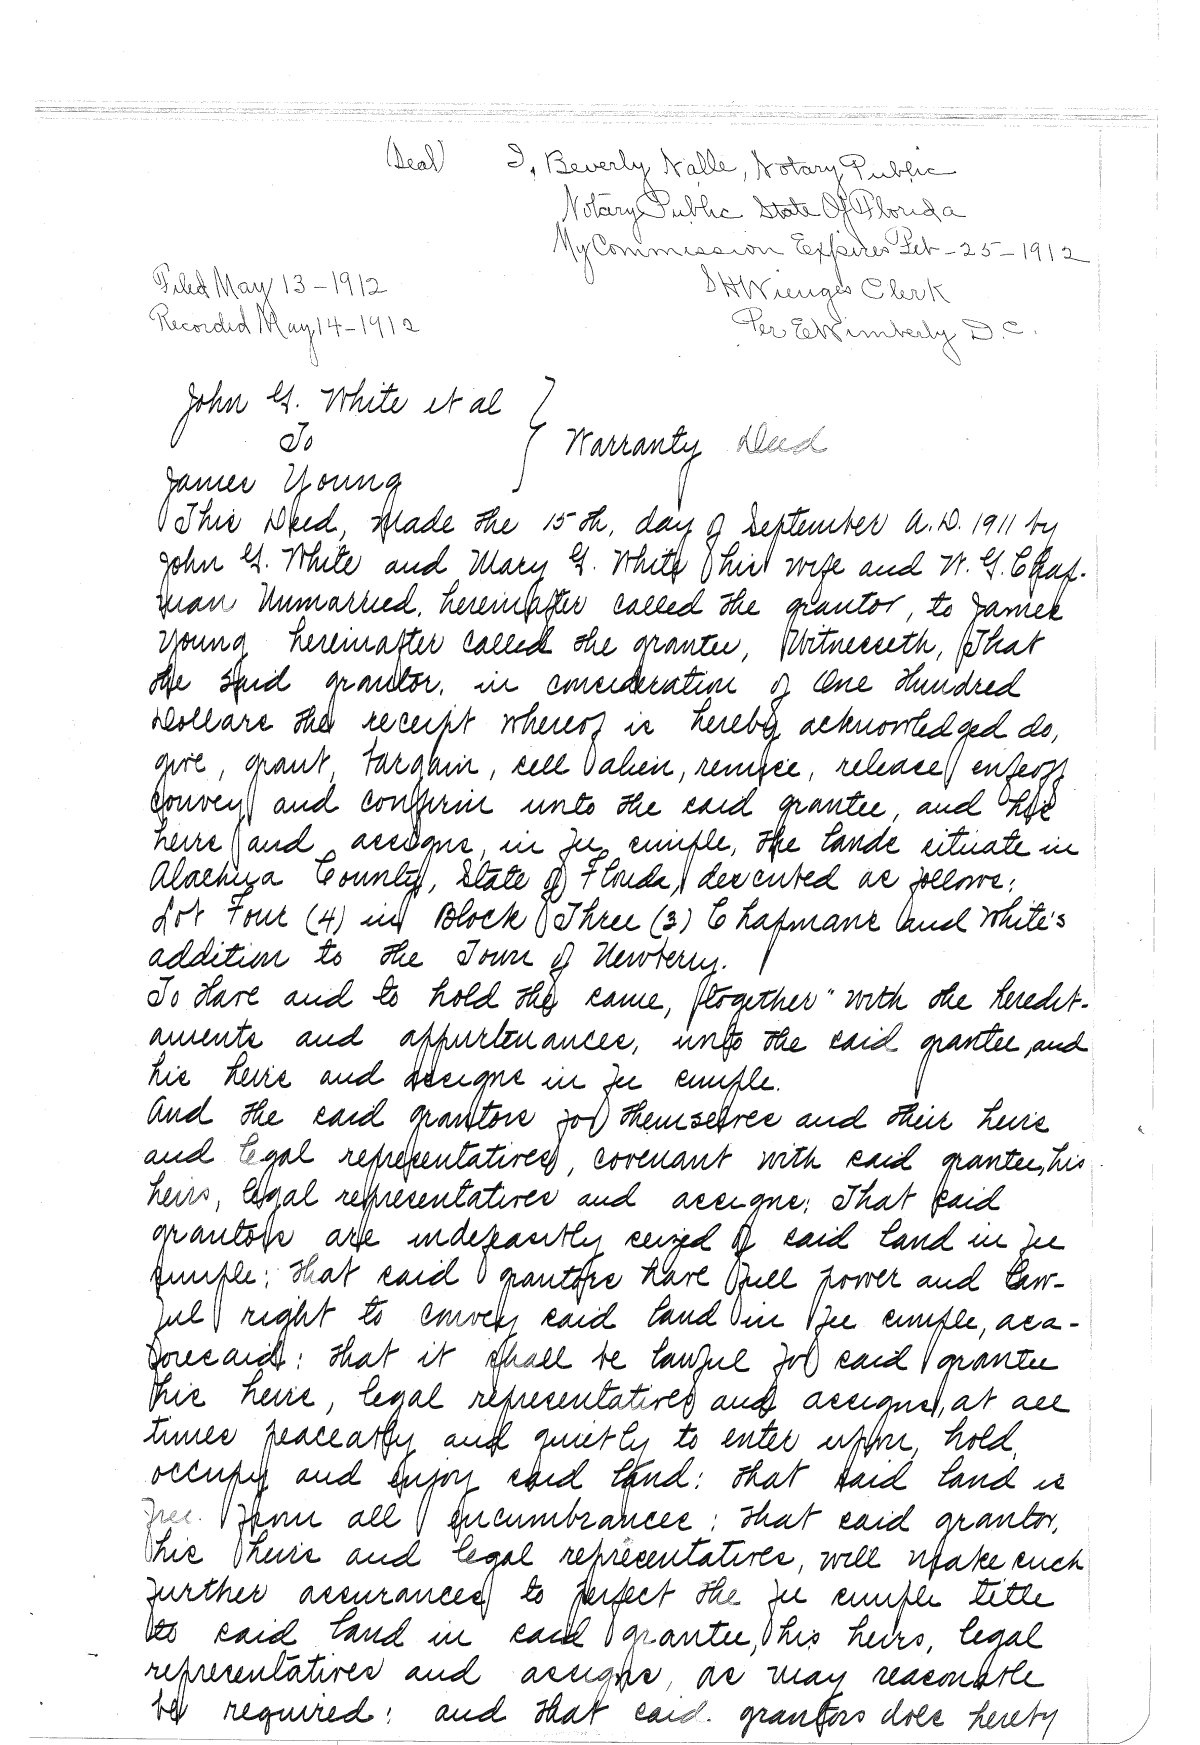 (Seal) I, Beverly Nalle, Notary Public
Notary Public State Of Florida
My Commission Expires Feb-25-1912
Filed May 13-1912
S H Wienges Clerk
Recorded May 14-1912
Per E Wimberly D.C.
John G. White et al
To
Warranty Deed
James Young
This Deed, Made the 15th, day of September A.D. 1911 by
John G. White and Mary G. White his wife and W. G. Chap-
man Unmarried, hereinafter called the grantor, to James
Young hereinafter called the grantee, Witnesseth, That
the said grantor, in consideration of One Hundred
Dollars the receipt whereof is hereby acknowledged do,
give, grant, bargain, sell alien, remise, release, enfeoff
convey and confirm unto the said grantee, and his
heirs and assigns, in fee simple, the lands situate in
Alachua County, State of Florida, described as follows:
Lot Four (4) in Block Three (3) Chapmans and White's
addition to the Town of Newberry.
To Have and to hold the same, together with the heredit-
aments and appurtenances, unto the said grantee, and
his heirs and assigns in fee simple.
And the said grantors for themselves and their heirs
and legal representatives, covenant with said grantee, his
heirs, legal representatives and assigns: That said
grantors are indefeasibly seized of said land in fee
simple: that said grantors have full power and law-
ful right to convey said land in fee simple, as a-
foresaid: that it shall be lawful for said grantee
his heirs, legal representatives and assigns, at all
times peaceably and quietly to enter upon, hold,
occupy and enjoy said land: that said land is
free from all encumbrances: that said grantor,
his heirs and legal representatives, will make such
further assurances to perfect the fee simple title
to said land in said grantee, his heirs, legal
representatives and assigns, as may reasonable
be required: and that said grantors does hereby